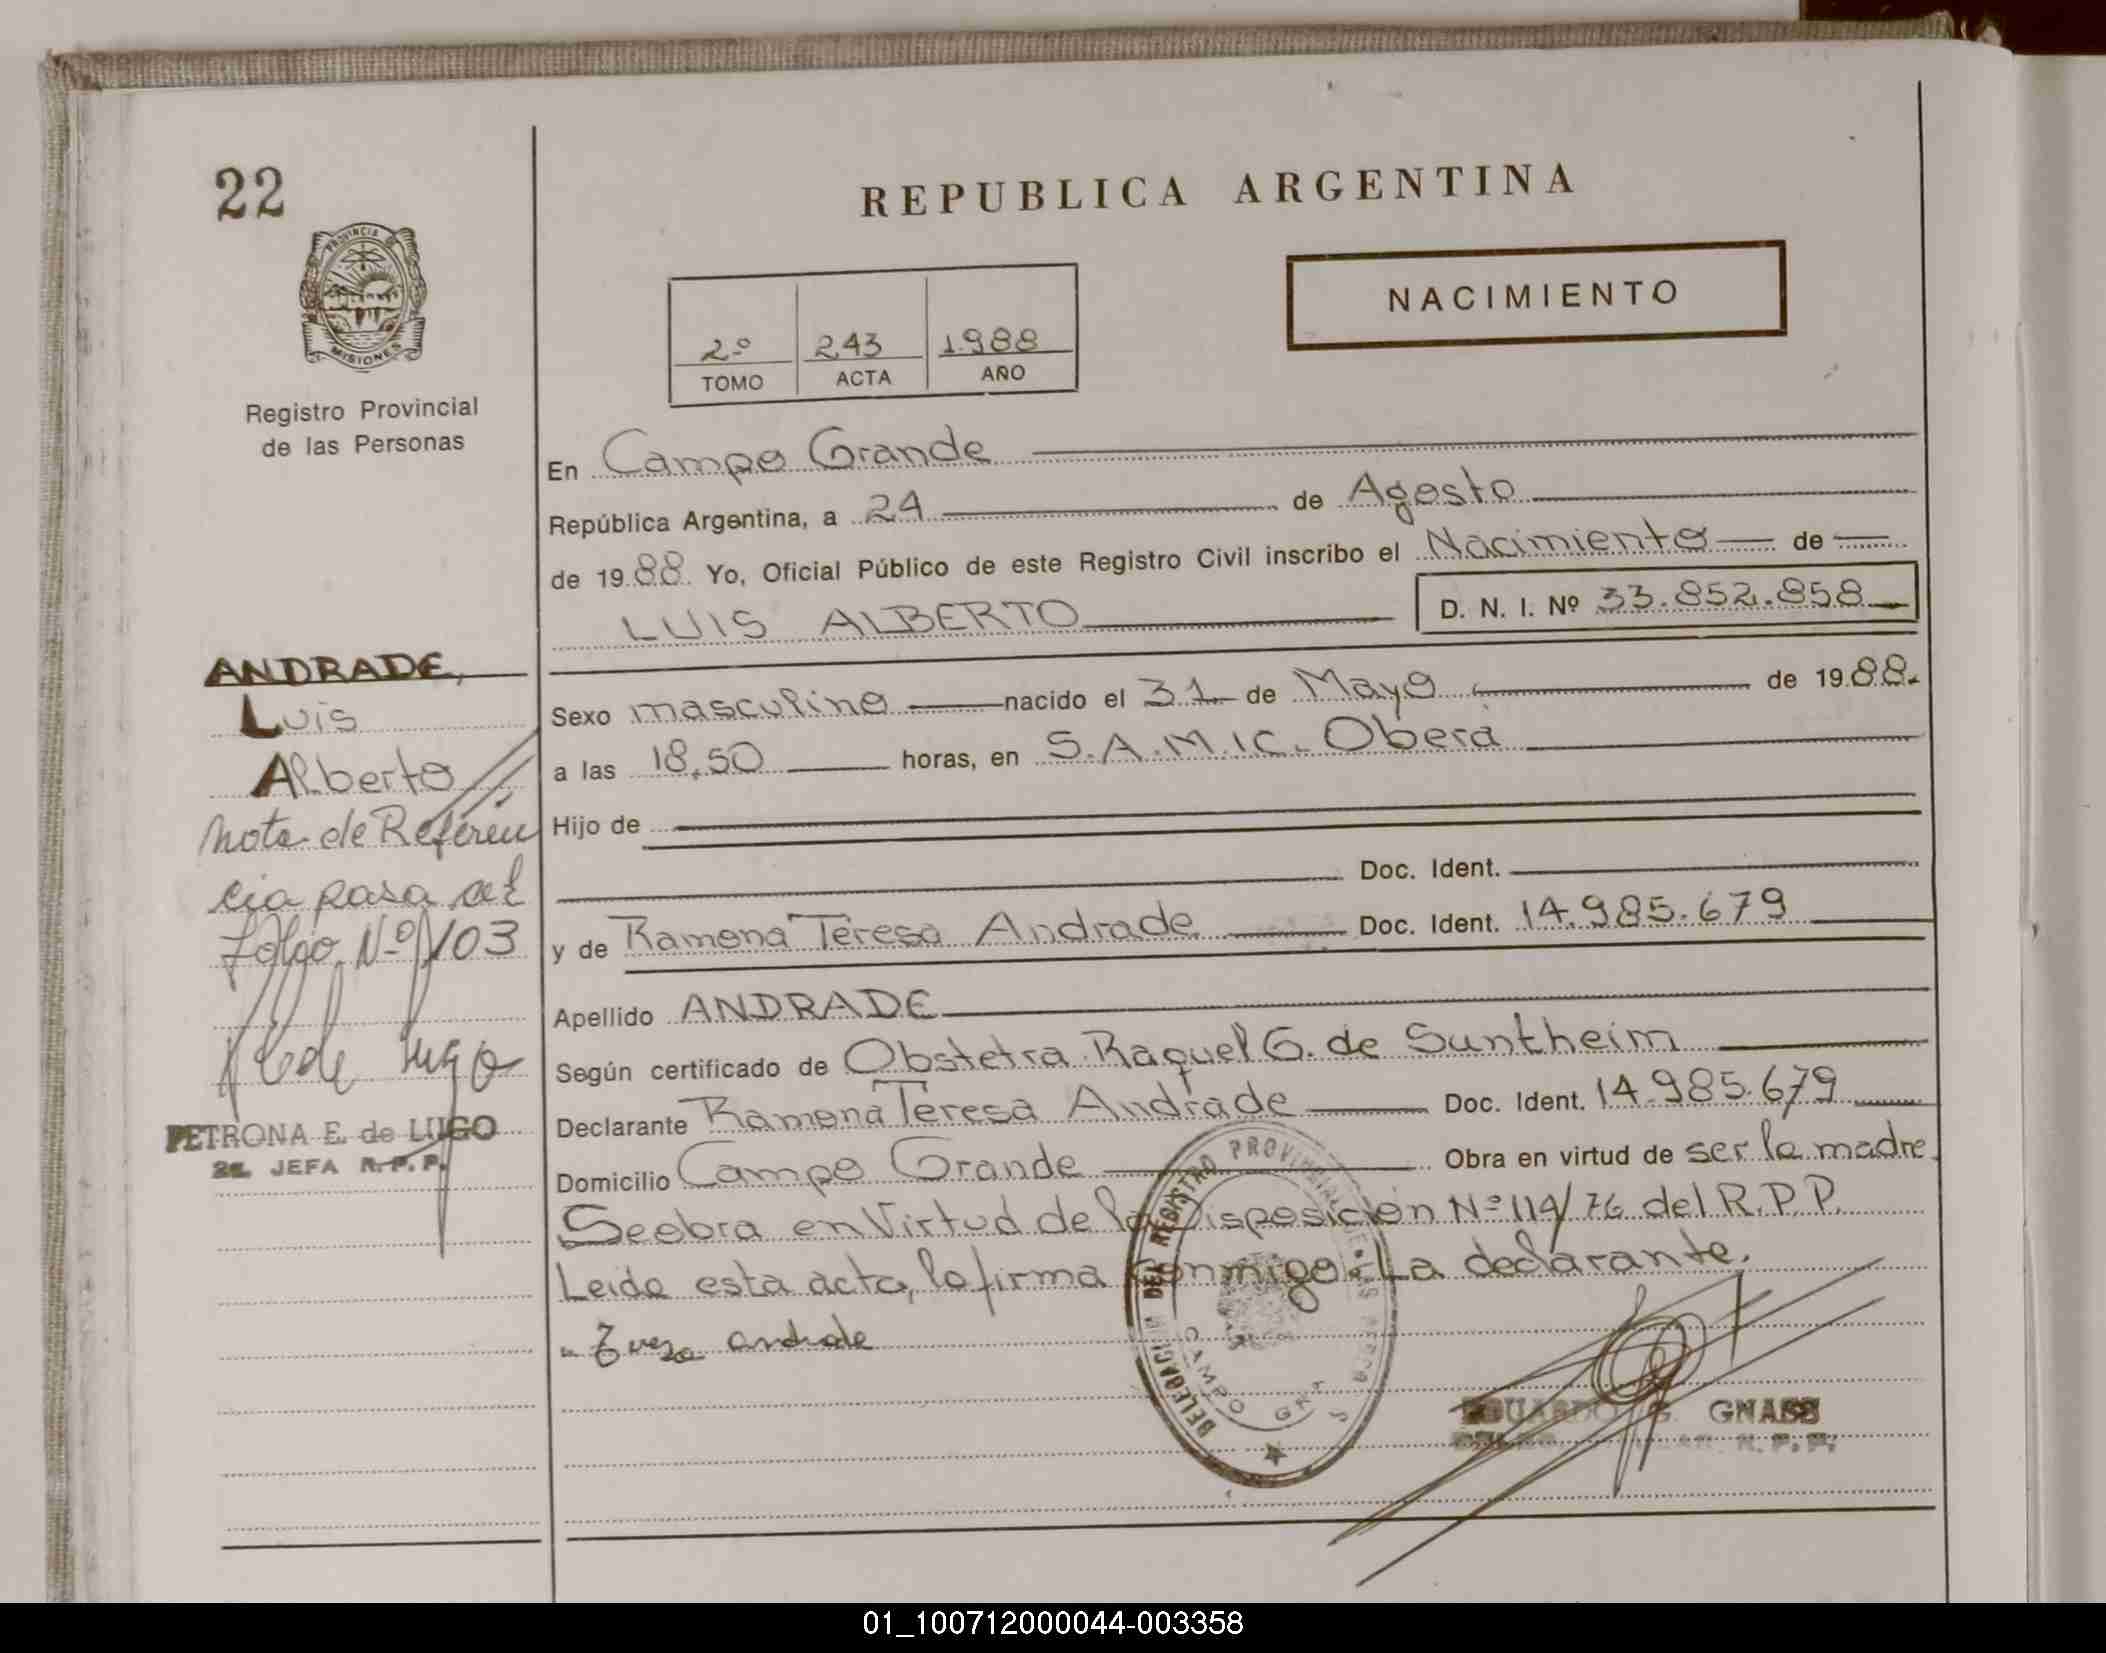 22
REPUBLICA ARGENTINA
PROVINCIA DE
MISIONES
Registro Provincial
de las Personas
NACIMIENTO
2º 243 1988
TOMO ACTA AÑO
En Campo Grande
República Argentina, a 24 de Agosto
de 1988. Yo, Oficial Público de este Registro Civil inscribo el Nacimiento de
LUIS ALBERTO D. N. I. Nº 33.852.858
ANDRADE,
Luis
Alberto
Nota de Referen
cia pasa al
folio Nº 103
PETRONA E. de LUGO
2a. JEFA R.P.P.
Sexo masculino nacido el 31 de Mayo de 1988.
a las 18,50 horas, en S.A.M.I.C. Oberá
Hijo de
Doc. Ident.
y de Ramona Teresa Andrade Doc. Ident. 14.985.679
Apellido ANDRADE
Según certificado de Obstetra Raquel G. de Suntheim
Declarante Ramona Teresa Andrade Doc. Ident. 14.985.679
Domicilio Campo Grande Obra en virtud de ser la madre.
Se obra en Virtud de la Disposición Nº 114/76 del R.P.P.
Leida esta acta, la firma conmigo: La declarante.
andrade
DELEGACION DEL REGISTRO PROVINCIAL DE LAS PERSONAS
CAMPO GRANDE
EDUARDO G. GNASS
R.P.P.
01_100712000044-003358